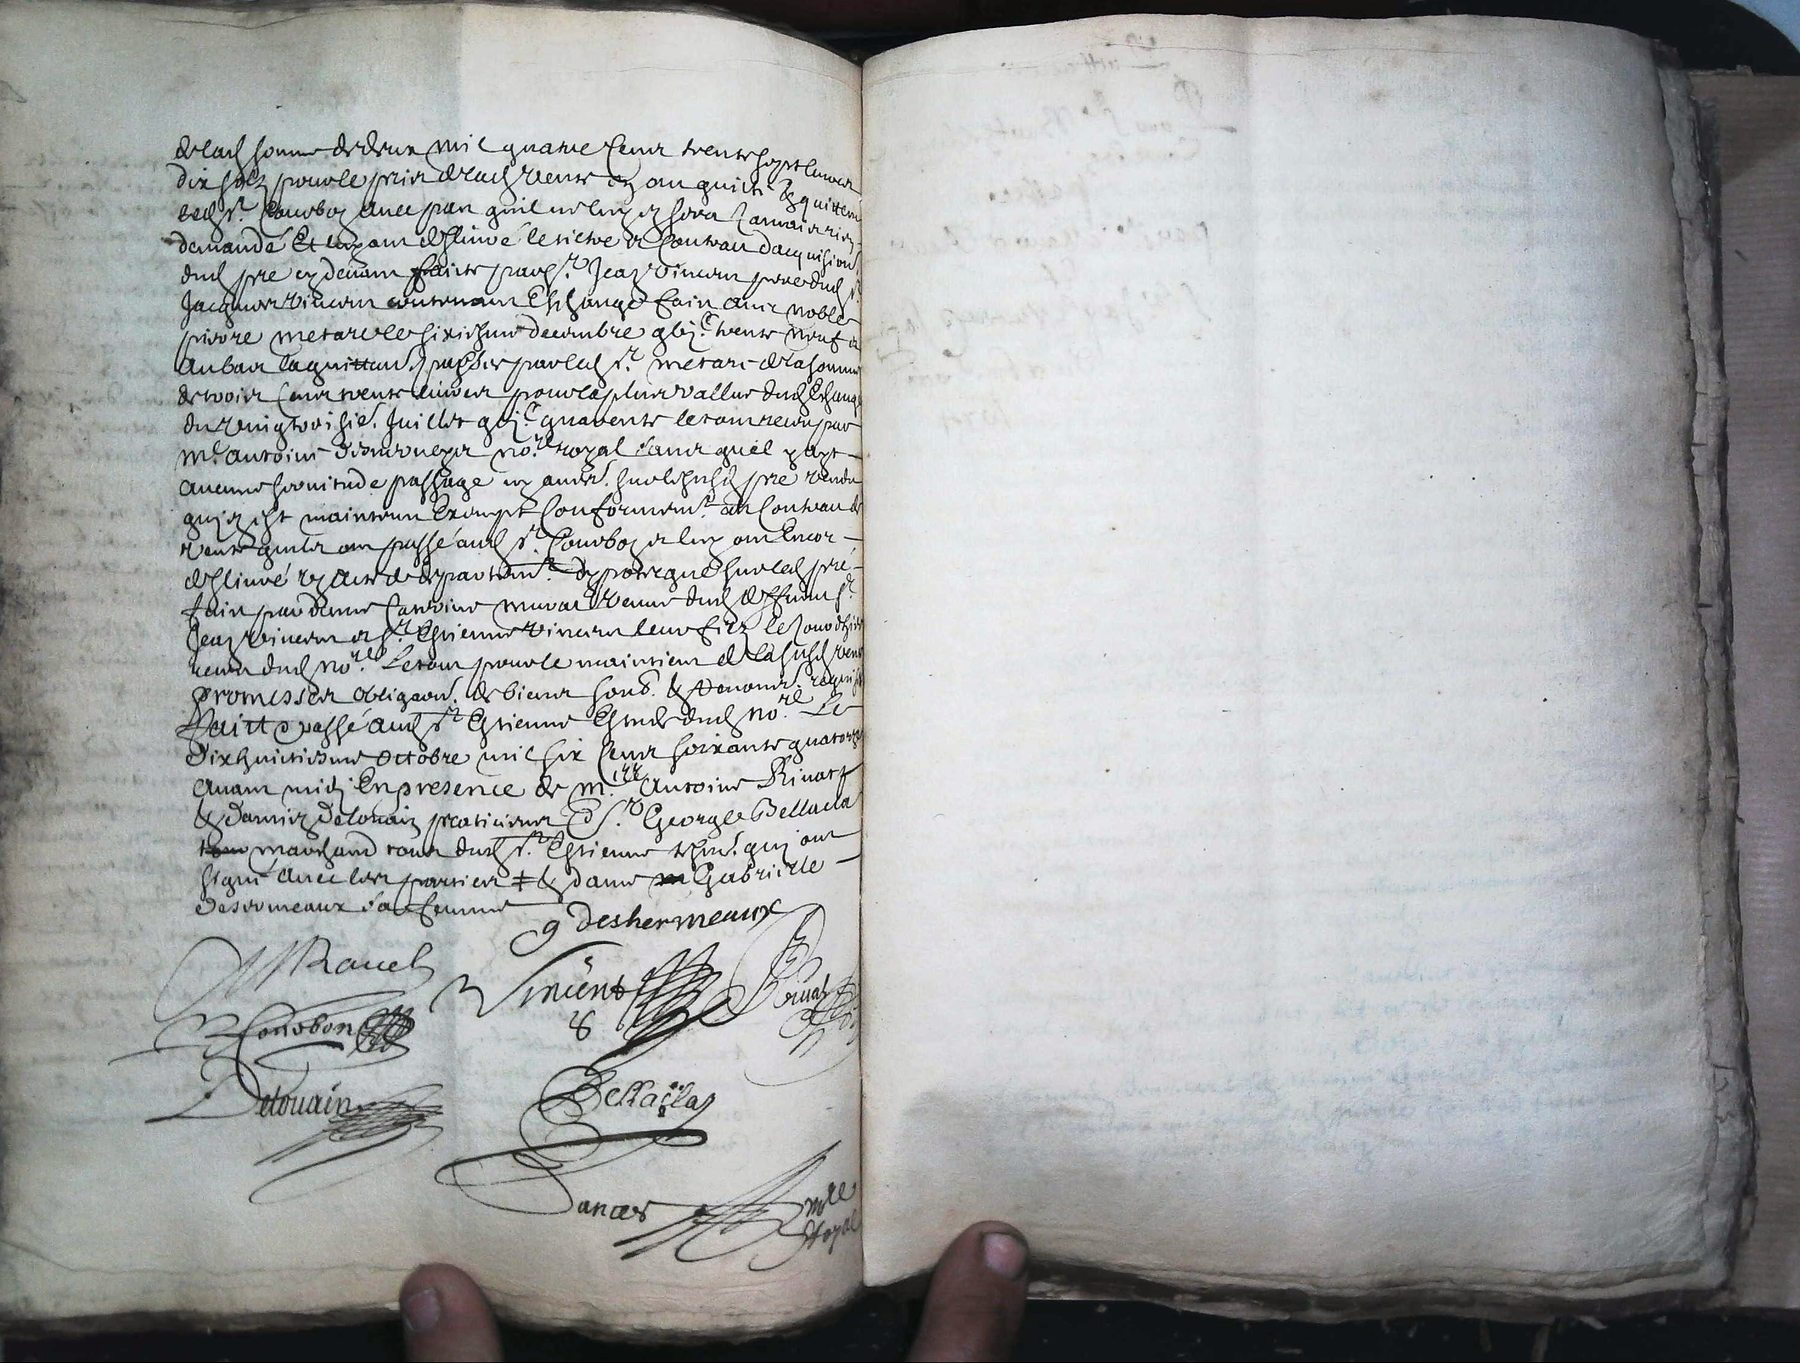 delad somme de deux mil quatre cent trente sept livres
dix solz pour le prix delad vente en ont quitté & quittent
led sr. Courbon avec pan quil ne luy en sera jamais rien
demandé Et luy ont deslivré le tictre et contrau dacquision
dud pré cy devant faicte par sr. Jean Vincent pere dud sr.
Jacques Vincent contenant Eschange fait avec noble
pierre metare le sixiesme decembre gbjc. trente neuf et
au bas la quittan. passée par led sr. metare de la somme
de trois cent trente livres pour la plus vallue dud Eschange
du vingtroisie. Juillet gbjc. quarente le tout receu par
me. antoine no.re royal sans quel y ayt
aucune servitude passage ny autr. sur le susd pré vendu
quj en est maintenu Exempt Conformem.t au Contrau de
vente quils ont passé aud sr. Courbon et luy ont Encor
deslivré un acte de departem.t dypoteque sur led pré
fait par dame Caterine vefve dud deffunt sr.
Jean Vincent et sr. Estienne Vincent leur filz le jourdhier
receu dud no.re Le tout pour le maintien de la susd vente
promesses obligaon. de biens soub. & renonc. requises
Faict & passé aud st Estienne Estude dud no.re Le
dixhuictiesme octobre mil six cent soixante quatorze
avant midj En presence de m.res Antoine Rivat
& Damien Delouain praticiens Et sr. George Bellacla
marchand tous dud st. Estienne tesm. quj ont
signé avec les parties ‡ & dame Gabrielle
Desormeaux sa femme
g deshermeaux
Vincent
Courbon
Delouain
Bellacla
Royal